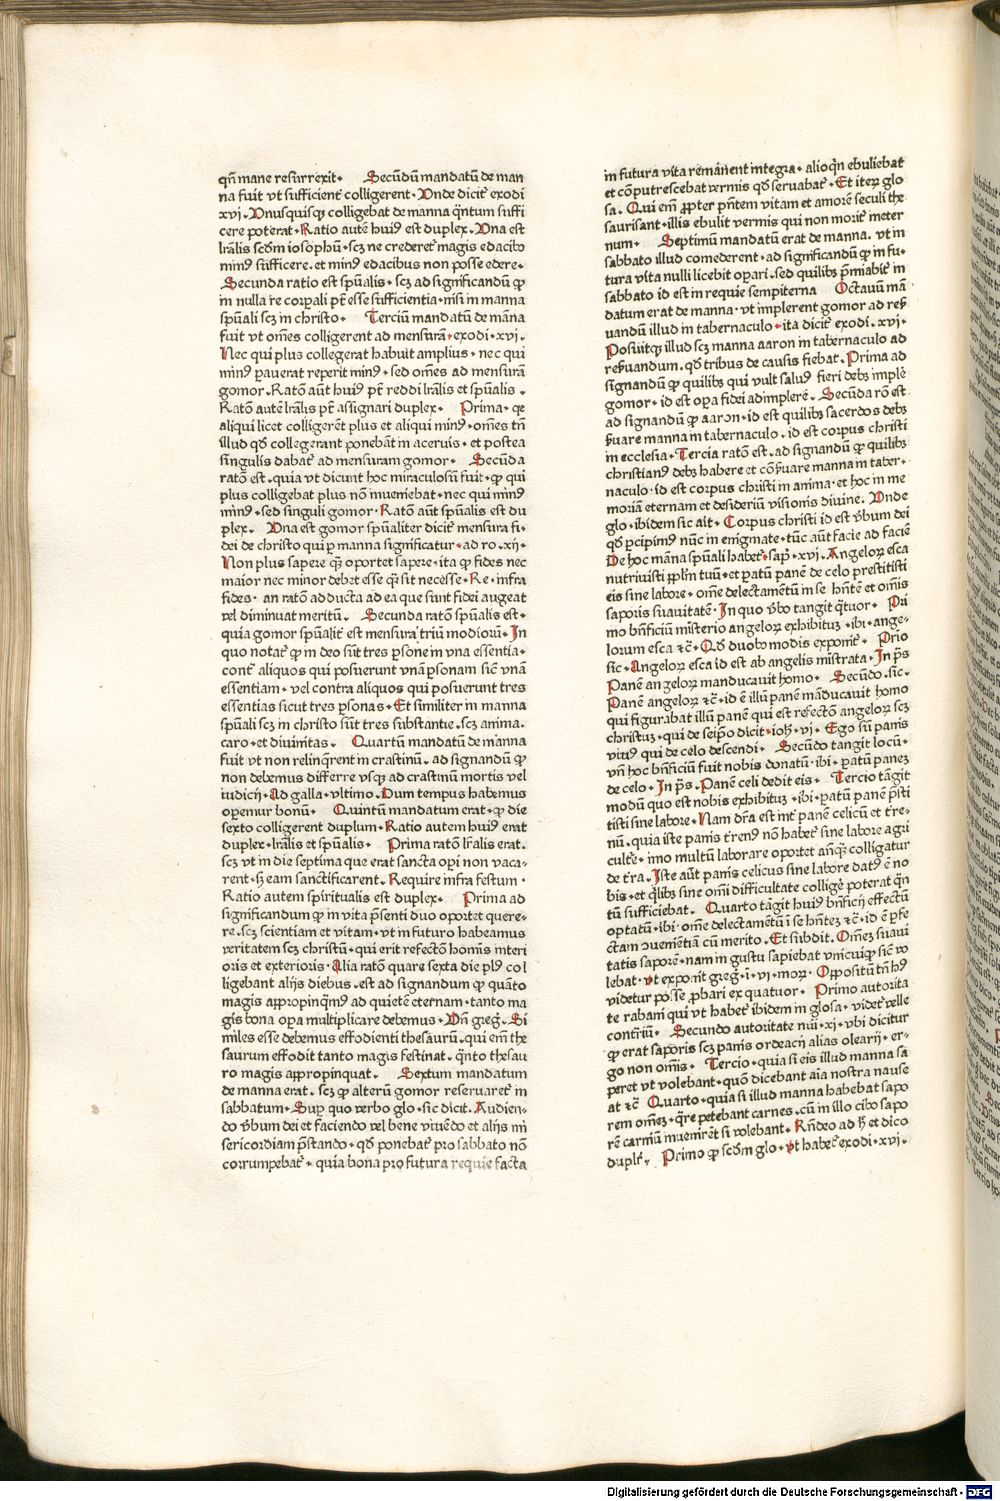 qn̄ mane resurrexit. Secūdū mandatū de man
na fuit vt sufficient̄ colligerent. Vnde dicit̄ exodi
xvj. Vnusquisqꝫ colligebat de manna q̄ntum suffi
cere poterat. Ratio autē huiꝰ est duplex. Vna est
lr̄alis scd̄m iosophū. scꝫ ne crederet̄ magis edacibꝰ
minꝰ sufficere. et minꝰ edacibus non posse edere.
Secunda ratio est sp̄ualis. scꝫ ad significandū ꝙ
in nulla re corp̄ali pt̄ esse sufficientia. nisi in manna
sp̄uali scꝫ in christo. Terciū mandatū de māna
fuit vt om̄es colligerent ad mensurā. exodi. xvj.
Nec qui plus collegerat habuit amplius. nec qui
minꝰ pauerat reperit minꝰ. sed om̄es ad mensurā
gomor. Ratō aūt huiꝰ pt̄ reddi lr̄alis et sp̄ualis.
Ratō autē lr̄alis pt̄ assignari duplex. Prima. qꝛ
aliqui licet colligerēt plus et aliqui minꝰ. om̄es tn̄
illud qd̄ collegerant ponebāt in aceruis. et postea
singulis dabat̄ ad mensuram gomor. Secūda
ratō est. quia vt dicunt hoc miraculosū fuit. ꝙ qui
plus colligebat plus nō inueniebat. nec qui minꝰ
minꝰ. sed singuli gomor. Ratō aūt sp̄ualis est du
plex. Vna est gomor sp̄ualiter dicit̄ mensura fi-
dei de christo qui ꝑ manna significatur. ad ro. xij.
Non plus sapere qͣꝫ oportet sapere. ita ꝙ fides nec
maior nec minor debet esse qͣꝫ sit necesse. Re. infra
fides. an ratō adducta ad ea que sunt fidei augeat
vel diminuat meritū. Secunda ratō sp̄ualis est.
quia gomor sp̄ualit̄ est mensura triū modiorū. In
quo notat̄ ꝙ in deo sūt tres ꝑsone in vna essentia.
contͣ aliquos qui posuerunt vnā ꝑsonam sic̄ vnā
essentiam. vel contra aliquos qui posuerunt tres
essentias sicut tres ꝑsonas. Et similiter in manna
sp̄uali scꝫ in christo sūt tres substantie. scꝫ anima.
caro. et diuinitas. Quartū mandatū de māna
fuit vt non relinq̄rent in crastinū. ad signandū ꝙ
non debemus differre vsqꝫ ad crastinū mortis vel
iudicij. Ad galla. vltimo. Dum tempus habemus
operemur bonū. Quintū mandatum erat. ꝙ die
sexto colligerent duplum. Ratio autem huiꝰ erat
duplex. lr̄alis et sp̄ualis. Prima ratō lr̄alis erat.
scꝫ vt in die septima que erat sancta op̄i non vaca-
rent. sꝫ eam sanctificarent. Require infra festum.
Ratio autem spiritualis est duplex. Prima ad
significandum ꝙ in vita p̄senti duo oportet quere-
re. scꝫ scientiam et vitam. vt in futuro habeamus
veritatem scꝫ christū. qui erit refectō homis interi
oris et exterioris. Alia ratō quare sexta die plꝰ col
ligebant alijs diebus. est ad signandum ꝙ quāto
magis appropinqͣmꝰ ad quietē eternam. tanto ma
gis bona oꝑa multiplicare debemus. Vn̄ greḡ. Si
miles esse debemus effodienti thesaurū. qui em̄ the
saurum effodit tanto magis festinat. q̄nto thesau
ro magis appropinquat. Sextum mandatum
de manna erat. scꝫ ꝙ alterū gomor reseruaret̄ in
sabbatum. Sup̲ quo verbo glo. sic dicit. Audien-
do v̄bum dei et faciendo vel bene viuēdo et alijs mi
sericordiam p̄stando. qd̄ ponebat̄ pro sabbato nō
corrumpebat̄. quia bona pro futura requie facta
in futura vita remanent integra. alioqͥn ebuliebat
et cōputrescebat vermis qd̄ seruabat̄. Et iteꝝ glo
sa. Qui em̄ ꝓpter p̄ntem vitam et amorē seculi the
saurisant. illis ebulit vermis qui non morit̄ in eter
num. Septimū mandatū erat de manna. vt in
sabbato illud comederent. ad significandū ꝙ in fu-
tura vita nulli licebit oꝑari. sed quilibꝫ p̄miabit̄ in
sabbato id est in requie sempiterna Octauū mā
datum erat de manna. vt implerent gomor ad res̄
uandū illud in tabernaculo. ita dicit̄ exodi. xvj.
Posuitqꝫ illud scꝫ manna aaron in tabernaculo ad
res̄uandum. qd̄ tribus de causis fiebat. Prima ad
signandū ꝙ quilibꝫ qui vult saluꝰ fieri debꝫ implē
gomor. id est oꝑa fidei adimplerē. Secūda rō est
ad signandū ꝙ aaron. id est quilibꝫ sacerdos debꝫ
s̄uare manna in tabernaculo. id est corpus christi
in ecclesia. Tercia ratō est. ad signandū ꝙ quilibꝫ
christianꝰ debꝫ habere et cōs̄uare manna in taber-
naculo. id est corpus christi in anima. et hoc in me
moriā eternam et desideriū visionis diuine. Vnde
glo. ibidem sic ait. Corpus christi id est v̄bum dei
qd̄ ꝑcipimꝰ nūc in enigmate. tūc aūt facie ad faciē
De hoc māna sp̄uali habet̄. sap̄. xvj. Angeloꝝ esca
nutriuisti pp̄lm̄ tuū. et patū panē de celo prestitisti
eis sine labore. om̄e delectamētū in se hn̄tē et om̄is
saporis suauitatē. In quo v̄bo tangit q̄tuor. Pri
mo bn̄ficiū misterio angeloꝝ exhibituꝫ. ibi. ange-
lorum esca ⁊c̄. Qd̄ duobꝰ modis exponit̄. Prīo
sic. Angeloꝝ esca id est ab angelis mīstrata. In p̄s
Panē angeloꝝ manducauit homo. Secūdo. sic.
Panē angeloꝝ ⁊c̄. id ē illū panē māducauit homo
qui figurabat illū panē qui est refectō angeloꝝ scꝫ
christuꝫ. qui de seip̄o dicit. ioh̄. vj. Ego sū panis
viuꝰ qui de celo descendi. Secūdo tangit locū.
vn̄ hoc bn̄ficiū fuit nobis donatū. ibi. patū paneꝫ
de celo. In p̄s. Panē celi dedit eis. Tercio tāgit
modū quo est nobis exhibituꝫ. ibi. patū panē p̄sti
tisti sine labore. Nam dr̄a est int̄ panē celicū et t̄re-
nū. quia iste panis t̄renꝰ nō habet̄ sine labore agri
cult̄e. imo multū laborare oportet anteqͣꝫ colligatur
de t̄ra. Iste aūt panis celicus sine labore datꝰ ē no
bis. et qͥlibꝫ sine om̄i difficultate colligē poterat qn̄
tū sufficiebat. Quarto tāgit huiꝰ bn̄ficij effectū
optatū. ibi. om̄e delectamētū ī se hn̄teꝫ ⁊c̄. id ē ꝑfe
ctam ɔuenientiā cū merito. Et subdit. Om̄eꝫ suaui
tatis saporē. nam in gustu sapiebat vnicuiqꝫ sic̄ vo
lebat. vt exponit greḡ. i. vj. moꝝ. Oppositū tn̄ hꝰ
videtur posse ꝓbari ex quatuor. Primo autorita
te rabani qui vt habet̄ ibidem in glosa. videt̄ velle
contͣriū. Secundo autoritate nūi. xj. vbi dicitur
ꝙ erat saporis scꝫ panis ordeacij alias olearij. er-
go non om̄is. Tercio. quia si eis illud manna sa
peret vt volebant. quō dicebant aīa nostra nause
at ⁊c̄ Quarto. quia si illud manna habebat sapo
rem om̄eꝫ. qͣre petebant carnes. cū in illo cibo sapo
rē carniū inuenirēt si volebant. Rn̄deo ad hꝫ et dico
duplr̄. Primo ꝙ scd̄m glo. vt habet̄ exodi. xvj.
Digitalisierung gefördert durch die Deutsche Forschungsgemeinschaft - DFG